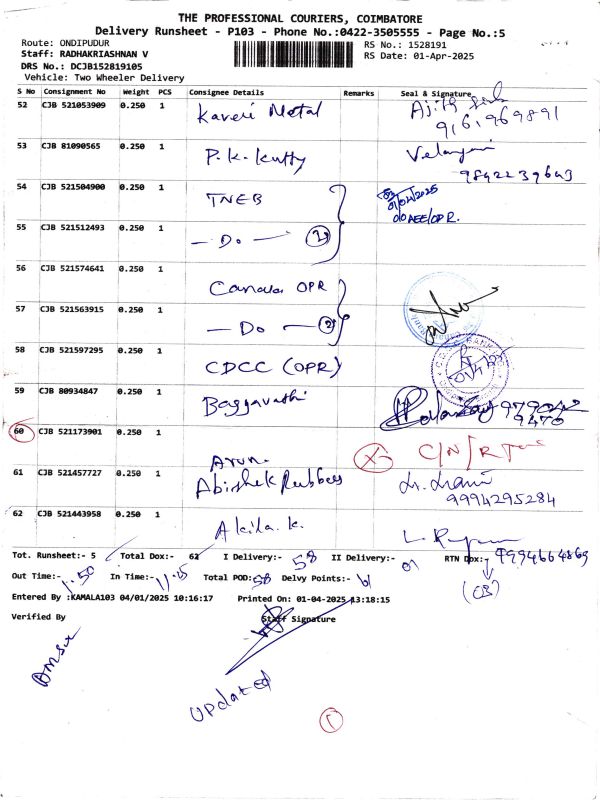 THE PROFESSIONAL COURIERS, COIMBATORE
Delivery Runsheet - P103 - Phone No.:0422-3505555 - Page No.:5
Route: ONDIPUDUR
RS No.: 1528191
Staff: RADHAKRIASHNAN V
RS Date: 01-Apr-2025
DRS No.: DCJB152819105
Vehicle: Two Wheeler Delivery
S No Consignment No Weight PCS Consignee Details Remarks Seal & Signature
52 CJB 521053909 0.250 1 Kaveri Metal
9161969891
53 CJB 81090565 0.250 1 P.K. Kutty
9842239643
54 CJB 521504900 0.250 1 TNEB
01/04/2025
55 CJB 521512493 0.250 1 — Do — 2
56 CJB 521574641 0.250 1 Canara OPR
57 CJB 521563915 0.250 1 — Do — 2
58 CJB 521597295 0.250 1 CDCC (OPR)
59 CJB 80934847 0.250 1 Baggavathi
60 CJB 521173901 0.250 1 Arun. X C/N/R
61 CJB 521457727 0.250 1 Abishek Rubbers
9994295284
62 CJB 521443958 0.250 1 Akila. K.
9994664869
Tot. Runsheet:- 5 Total Dox:- 62 I Delivery:- 58 II Delivery:- 01 RTN Dox:-
Out Time:- 1.50 In Time:- 11.25 Total POD: 58 Delvy Points:- 61
Entered By :KAMALA103 04/01/2025 10:16:17 Printed On: 01-04-2025 13:18:15
Verified By
Staff Signature
Updated
1